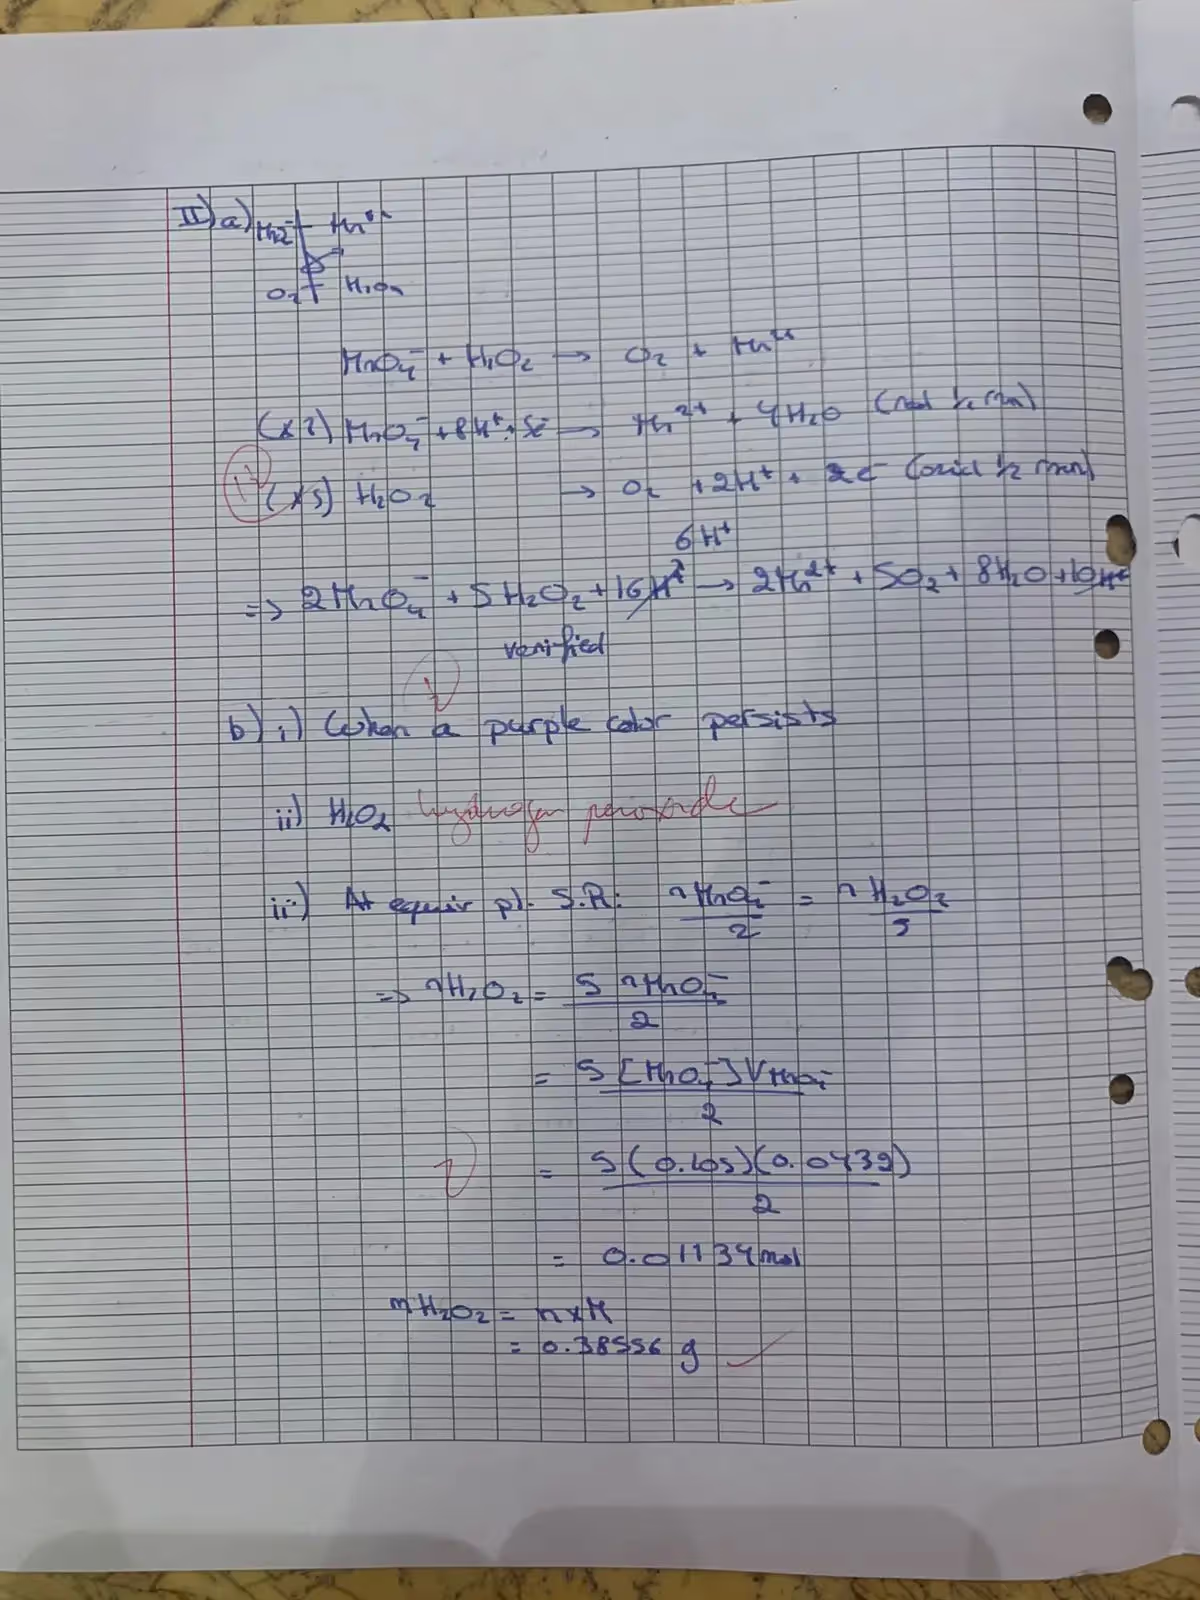 II) a)
O₂ H₂O₂
MnO₄⁻ + H₂O₂ → O₂ + Mn²⁺
(x2) MnO₄⁻ + 8H⁺ + 5e⁻ → Mn²⁺ + 4H₂O (red ½ rxn)
(x5) H₂O₂ → O₂ + 2H⁺ + 2e⁻ (oxid ½ rxn)
6H⁺
=> 2MnO₄⁻ + 5H₂O₂ + 16H⁺ → 2Mn²⁺ + 5O₂ + 8H₂O + 10H⁺
verified
b) i) When a purple color persists
ii) H₂O₂ hydrogen peroxide
iii) At equiv pt. S.R: nMnO₄⁻/2 = nH₂O₂/5
=> nH₂O₂ = 5 nMnO₄⁻/2
= 5[MnO₄⁻]VMnO₄⁻/2
= 5(0.105)(0.0432)/2
= 0.01134 mol
mH₂O₂ = n x M
= 0.38556 g